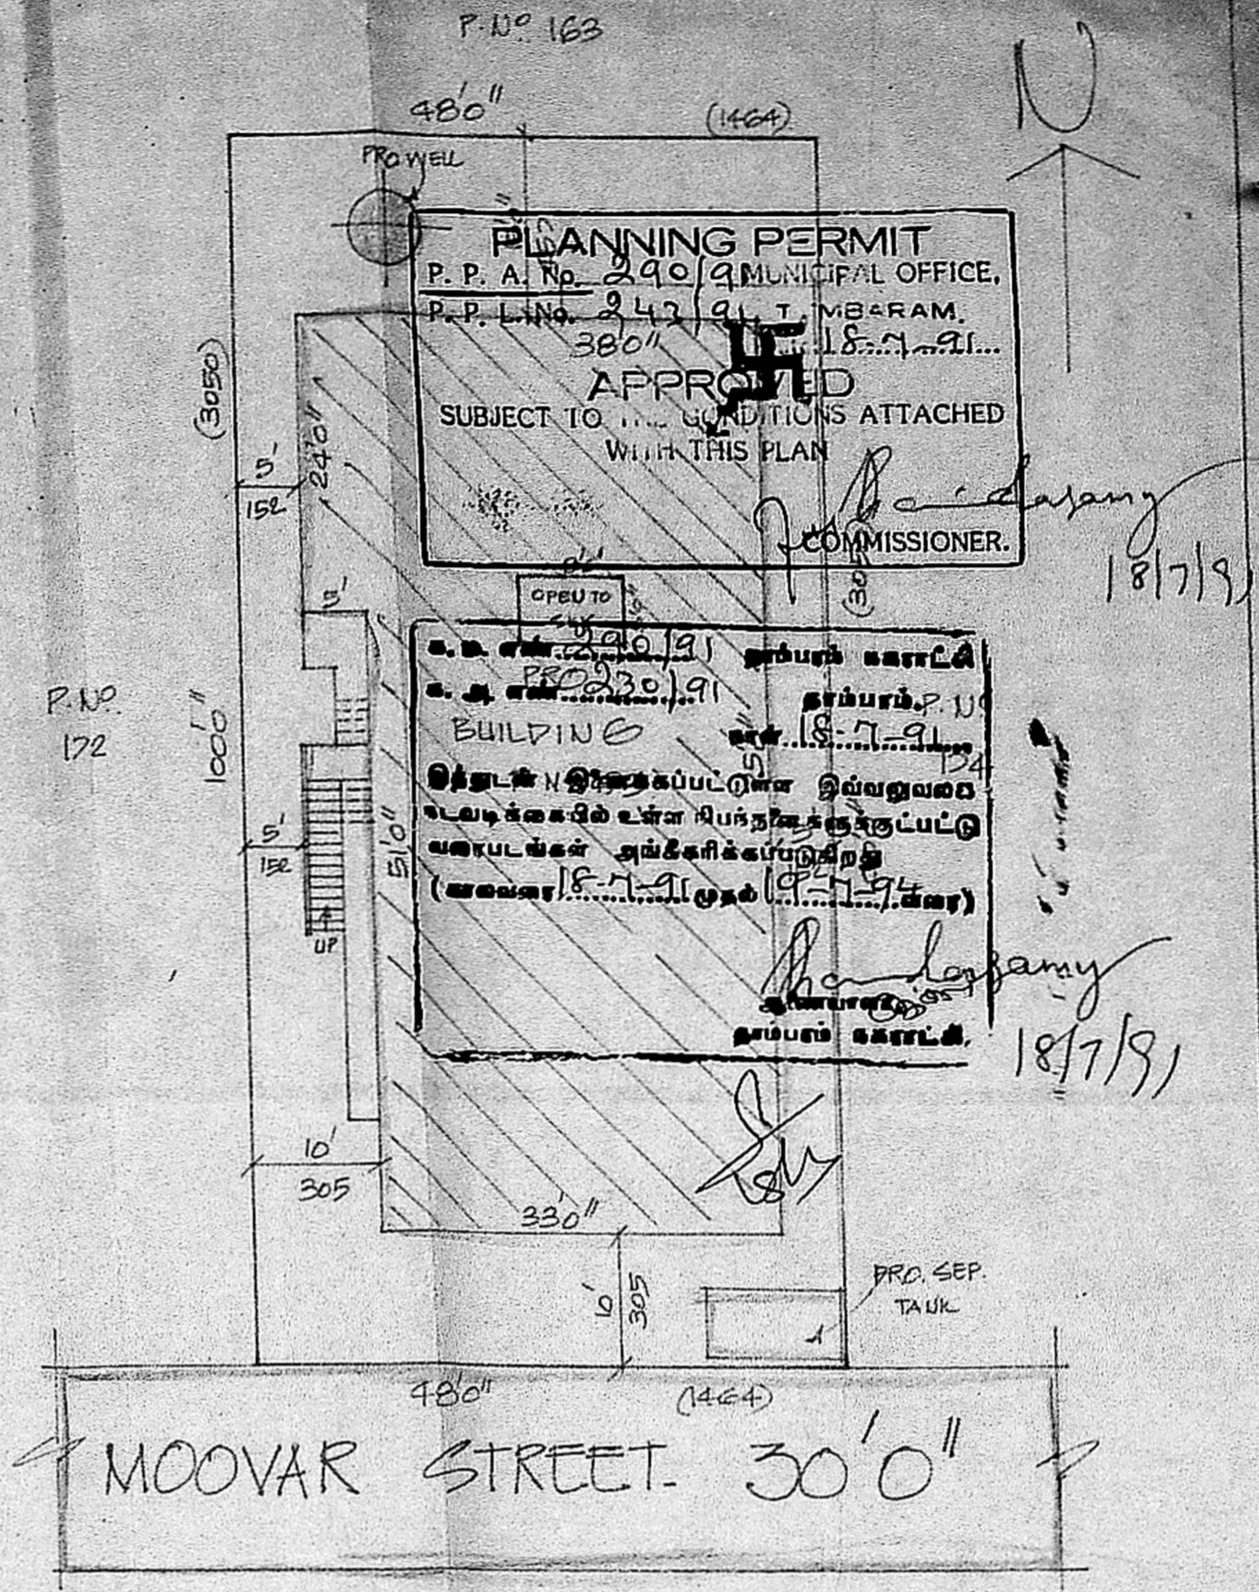 P.Nº 163
N
48'0"
(1464)
PRO WELL
PLANNING PERMIT
P. P. A. No. 290/91 MUNICIPAL OFFICE,
P. P. L. No. 243/91
380"
18-7-91
APPROVED
SUBJECT TO THE CONDITIONS ATTACHED
WITH THIS PLAN
COMMISSIONER.
18/7/91
(3050)
24'0"
5'
152
5'
OPEN TO
க. ம. எண் 290/91 தாம்பரம் நகராட்சி
க. அ. எண் 230/91 தாம்பரம்.
PRO
P. Nº
BUILDING
நாள் 18-7-91
174
இத்துடன் இணைக்கப்பட்டுள்ள இவ்வலுவலக
நடவடிக்கையில் உள்ள நிபந்தனைகளுக்குட்பட்டு
வரைபடங்கள் அங்கீகரிக்கப்படுகிறது
(காலவரை 18-7-91 முதல் 19-7-94 வரை)
ஆணையாளர்
தாம்பரம் நகராட்சி.
18/7/91
P.Nº.
172
100'0"
5'
152
51'0"
UP
10'
305
33'0"
10'
305
PRO. SEP.
TANK
48'0"
(1464)
MOOVAR STREET. 30'0"